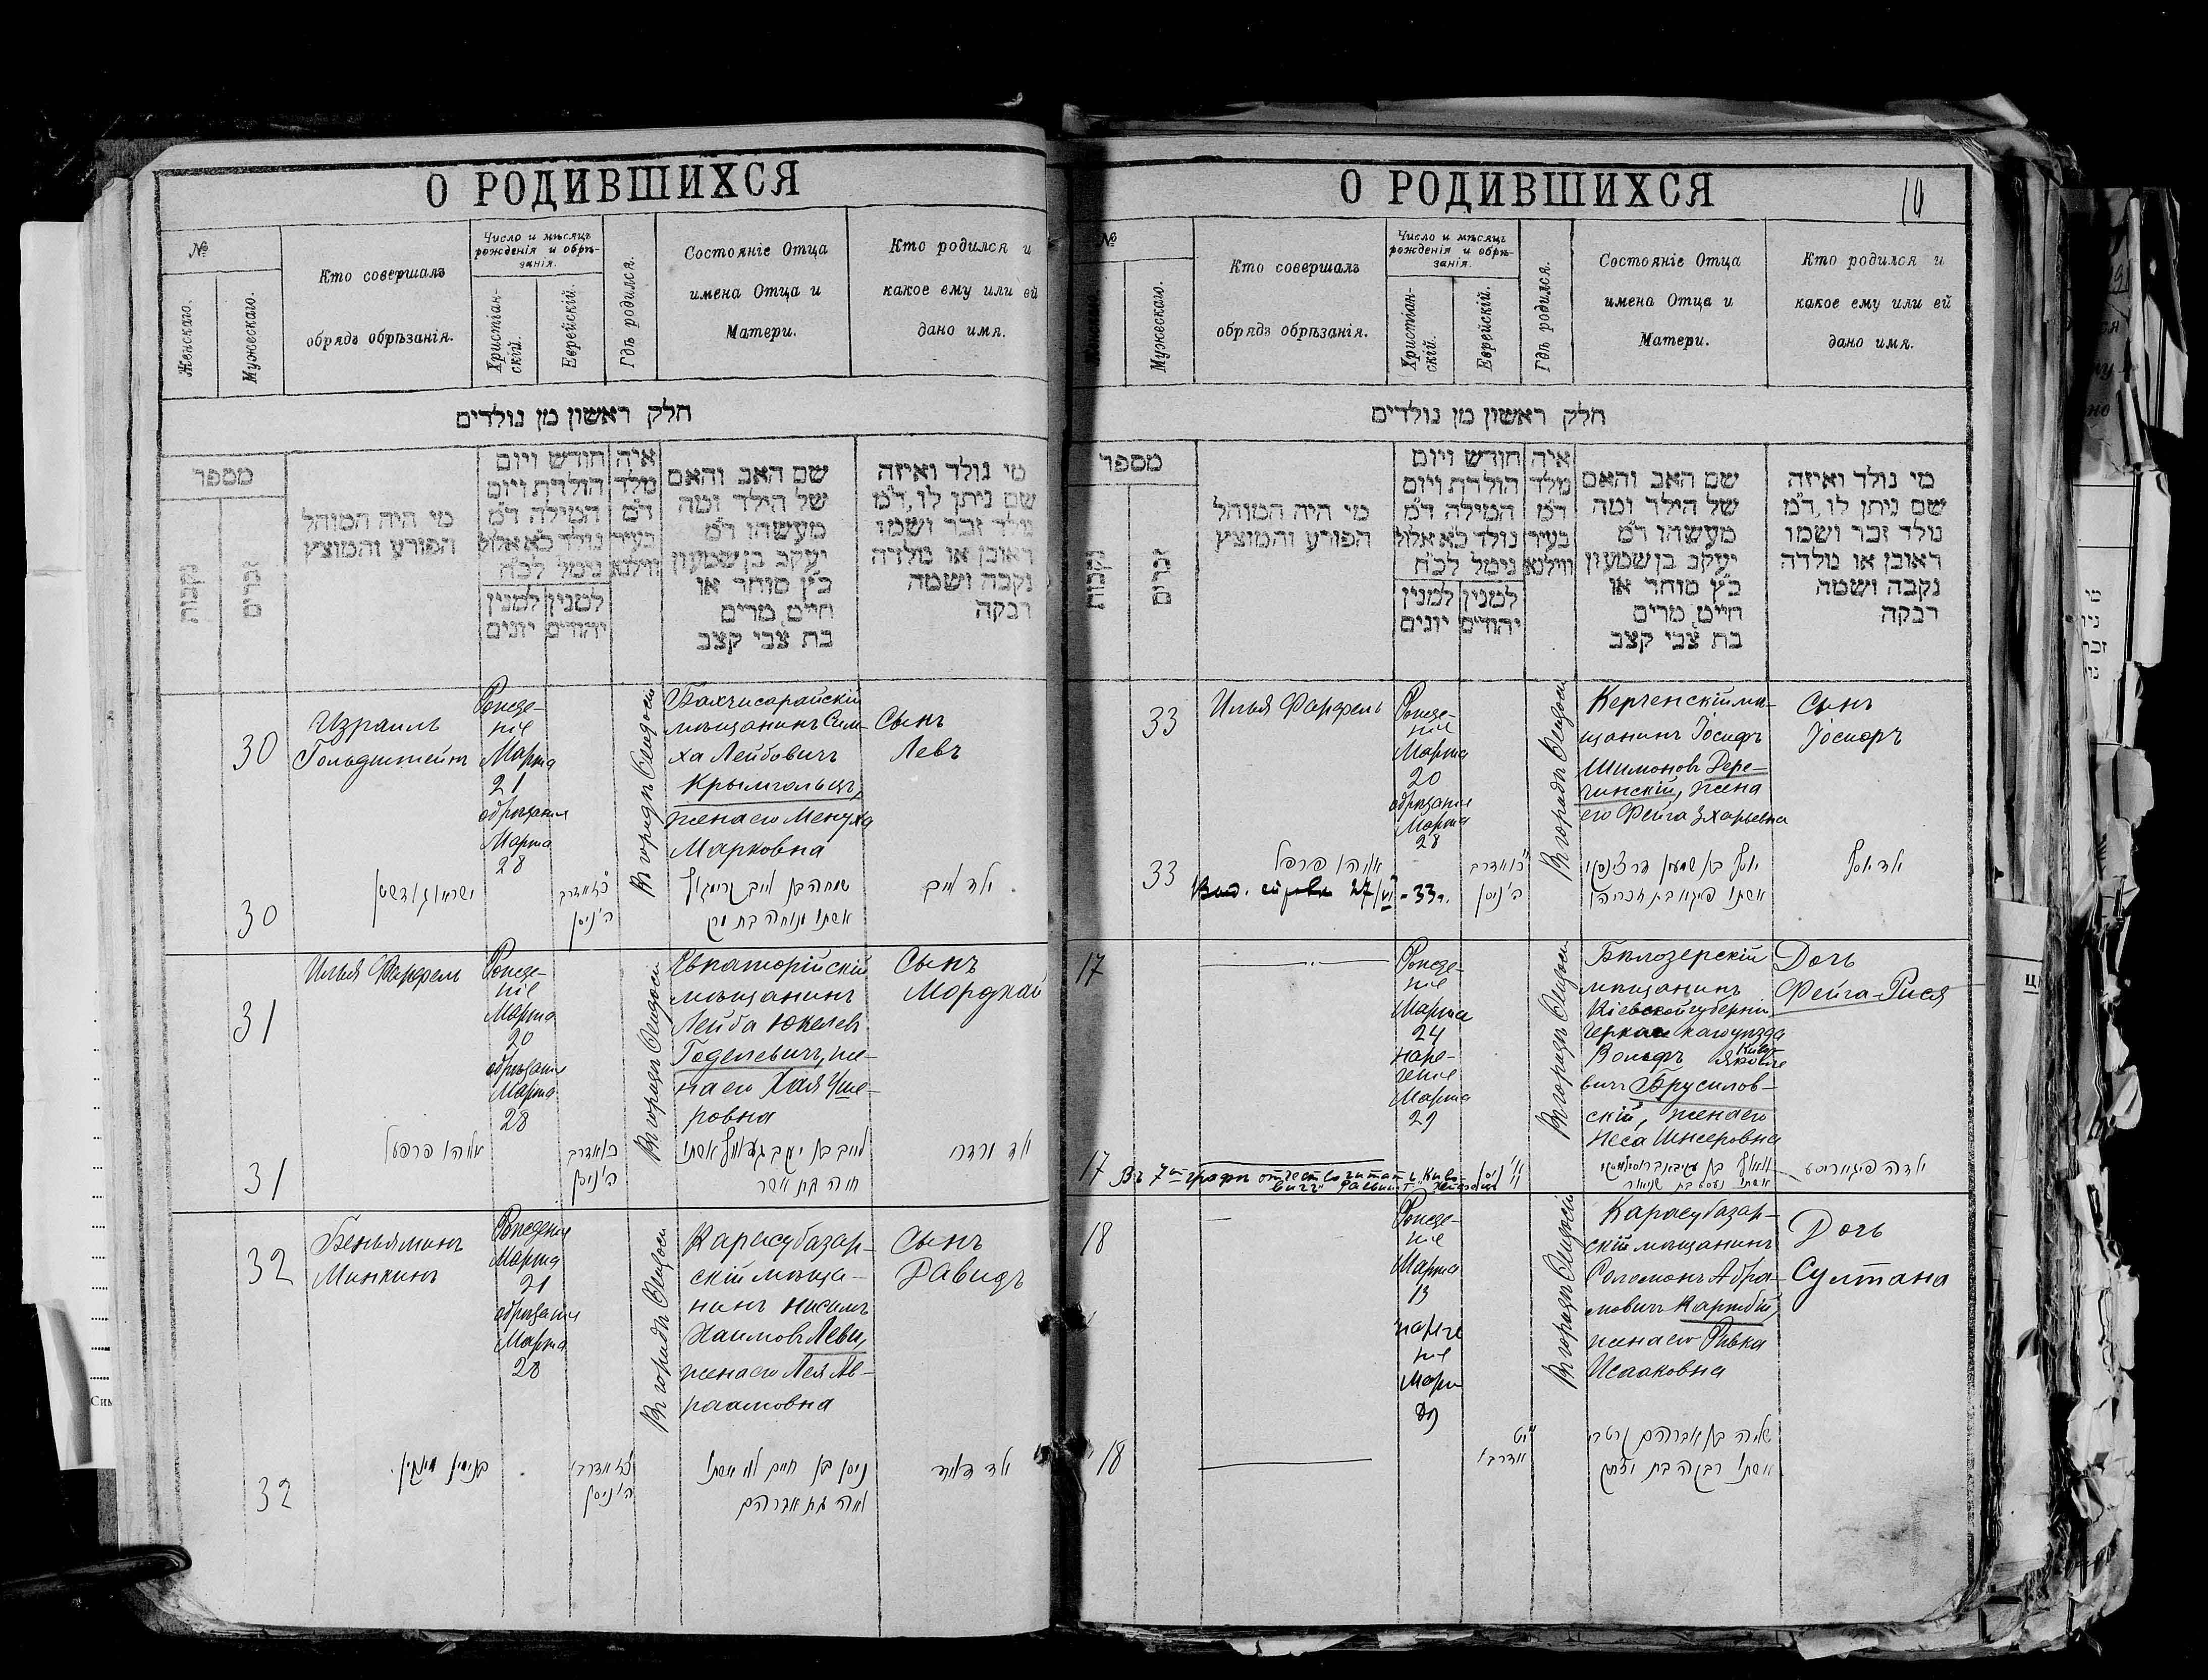 О РОДИВШИХСЯ
№
Женскаго.
Мужескаго.
Кто совершалъ
обрядъ обрѣзанія.
Число и мѣсяцъ
рожденія и обрѣ-
занія.
Христіан-
скій.
Еврейскій.
Гдѣ родился.
Состояніе Отца
имена Отца и
Матери.
Кто родился и
какое ему или ей
дано имя.
חלק ראשון מן נולדים
מספר
נקבות
זכרים
מי היה המוהל
הפורע והמוצץ
חודש ויום
הולדת ויום
המילה ד״מ
נולד כ״א אלול
נימל לכ״ח
למנין
יהודים
למנין
יונים
איה
מלד
ד״מ
בעיר
ווילנא
שם האב והאם
של הילד ומה
מעשהו ד״מ
יעקב בן שמעון
כ״ץ סוחר או
חייט, מרים
בת צבי קצב
מי נולד ואיזה
שם ניתן לו, ד״מ
נולד זכר ושמו
ראובן או נולדה
נקבה ושמה
רבקה
30
Израиль
Гольдштейнъ
Рожде-
ніе
Марта
21
обрѣзаніе
Марта
28
Въ городѣ Ѳеодосіи
Бахчисарайскій
мѣщанинъ Сим-
ха Лейбовичъ
Крымгольцъ,
жена его Менуха
Марковна
Сынъ
Левъ
30
ה׳ ניסן
אשתו מנוחה בת
ילד לייב
31
Илья Фарфель
Рожде-
ніе
Марта
20
обрѣзаніе
Марта
28
Въ городѣ Ѳеодосіи
Евпаторійскій
мѣщанинъ
Лейба Юкелев
Годелевичъ, же-
на его Хая Уше-
ровна
Сынъ
Мордхай
31
אליהו פרפעל
ה׳ ניסן
חיה בת אשר
ילד מרדכי
32
Беньяминъ
Минкинъ
Рожденіе
Марта
21
обрѣзаніе
Марта
28
Въ городѣ Ѳеодосіи
Карасубазар-
скій мѣща-
нинъ Нисимъ
Хаимовъ Леви,
жена его Лея Ав-
раамовна
Сынъ
Давидъ
32
בנימין מינקין
ה׳ ניסן
ניסן בן חיים לוי אשתו
לאה בת אברהם
ילד דוד
О РОДИВШИХСЯ
10
№
Мужескаго.
Кто совершалъ
обрядъ обрѣзанія.
Число и мѣсяцъ
рожденія и обрѣ-
занія.
Христіан-
скій.
Еврейскій.
Гдѣ родился.
Состояніе Отца
имена Отца и
Матери.
Кто родился и
какое ему или ей
дано имя.
חלק ראשון מן נולדים
מספר
נקבות
זכרים
מי היה המוהל
הפורע והמוצץ
חודש ויום
הולדת ויום
המילה ד״מ
נולד כ״א אלול
נימל לכ״ח
למנין
יהודים
למנין
יונים
איה
מלד
ד״מ
בעיר
ווילנא
שם האב והאם
של הילד ומה
מעשהו ד״מ
יעקב בן שמעון
כ״ץ סוחר או
חייט, מרים
בת צבי קצב
מי נולד ואיזה
שם ניתן לו, ד״מ
נולד זכר ושמו
ראובן או נולדה
נקבה ושמה
רבקה
33
Илья Фарфель
Рожде-
ніе
Марта
20
обрѣзаніе
Марта
28
Въ городѣ Ѳеодосіи
Керченскій мѣ-
щанинъ Іосифъ
Шимоновъ Дере-
чинскій, жена
его Фейга Зхарьевна
Сынъ
Іосифъ
33
אליהו פרפל
27/VI - 33 г.
ה׳ ניסן
יוסף בן שמעון
אשתו פייגא בת זכריהו
ילד יוסף
17
Рожде-
ніе
Марта
24
наре-
ченіе
Марта
29
Въ городѣ Ѳеодосіи
Бѣлозерскій
мѣщанинъ
Кіевской губерніи
Черкаскаго уѣзда
Вольфъ
вичъ Брусилов-
скій, жена его
Неса Шнееровна
Дочь
Фейга-Рися
17
Въ 7ой графѣ отчество читать
ילדה
18
Рожде-
ніе
Марта
13
нарече
ніе
Мар
Въ городѣ Ѳеодосіи
Карасубазар-
скій мѣщанинъ
Соломонъ Абра-
мовичъ
жена его Ривка
Исааковна
Дочь
Султана
18
אשתו רבקה בת יצחק